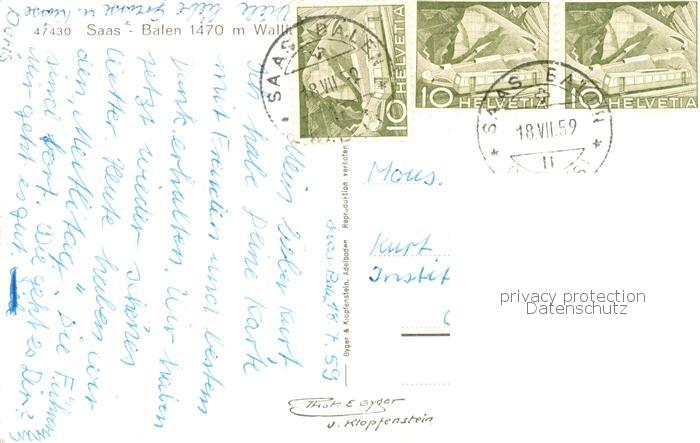 47430 Saas - Balen 1470 m Wallis
Saas Balen 18.7.59
Mein lieber Kurt
Ich habe Deine Karte
mit Freuden und bestem
Dank erhalten. Wir haben
jetzt wieder schönes
Wetter. Heute haben wir
den "Mittlitag". Die
sind fort. Wie geht es Dir?
Mir geht es gut.
Viele liebe Grüsse u. Küsse
Doris
Gyger & Klopfenstein, Adelboden Reproduktion verboten
Phot. E Gyger
u. Klopfenstein
SAAS - BALEN
18.VII.59
10 HELVETIA
10 HELVETIA
10 HELVETIA
SAAS - BALEN
18.VII.59
11
Mons.
Kurt
Instit
privacy protection
Datenschutz